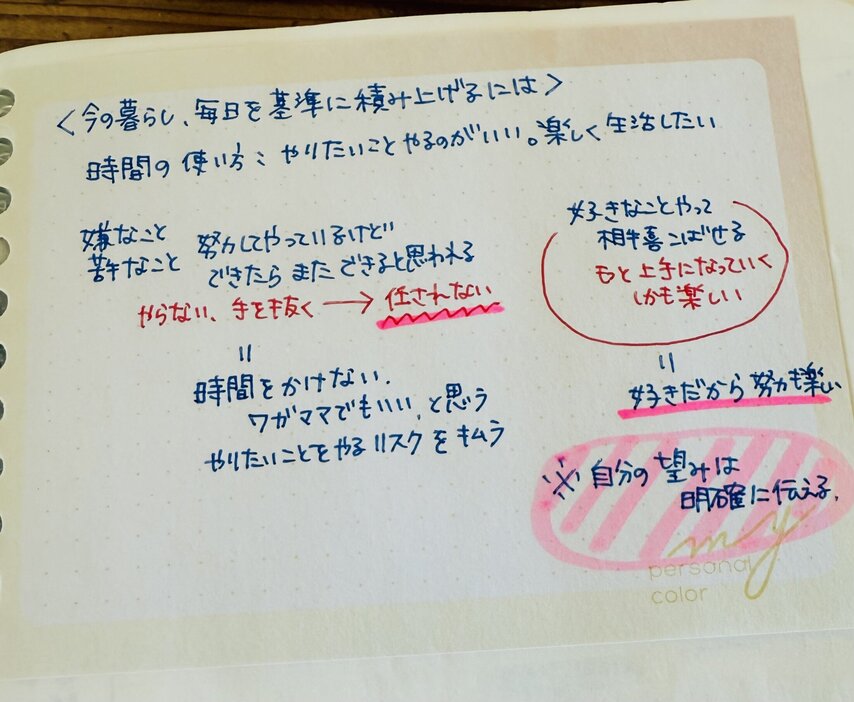 ＜今の暮らし、毎日を基準に積み上げるには＞
時間の使い方：やりたいことやるのがいい。楽しく生活したい
嫌なこと
苦手なこと
努力してやっているけど
できたらまたできると思われる
やらない、手を抜く → 任されない
＝
時間をかけない、
ワガママでもいい、と思う
やりたいことをやるリスクを
好きなことやって
相手喜こばせる
もと上手になっていく
しかも楽しい
＝
好きだから努力も楽しい
※自分の望みは
明確に伝える、
my
personal
color